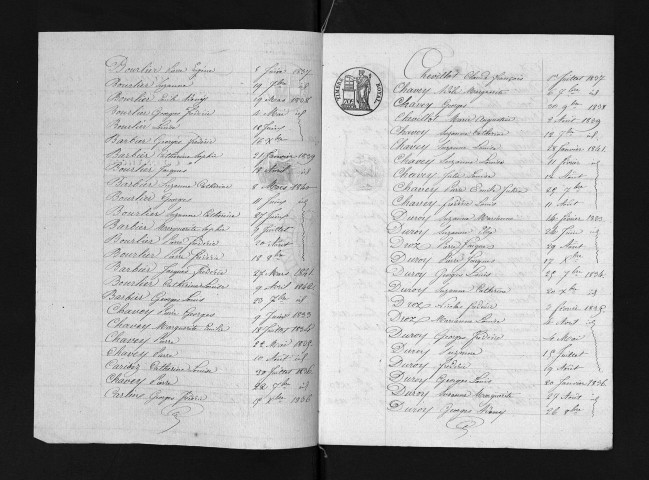 Bourlier Pierre Eugène 5 Juin 1837
Bourlier Suzanne 19 7bre id
Bourlier Emile 19 Mars 1838
Bourlier Georges Frédéric 4 Mai id
Bourlier 18 Juin
Barbier Georges Frédéric 16 Xbre
Barbier Catherine Sophie 21 Janvier 1839
Bourlier Jacques 18 Aout id
Barbier Suzanne Catherine 8 Mars 1840
Bourlier Georges 11 Juin id
Bourlier Suzanne Catherine 27 Juin
Barbier Marguerite Sophie 9 Juillet
Bourlier Pierre Frédéric 20 Aout
Bourlier Pierre Frédéric 18 9bre
Barbier Jacques Frédéric 27 Mars 1841
Bourlier Catherine Louise 9 Avril 1842
Barbier Georges Louis 23 7bre id
Chavey Pierre Georges 9 1833
Chavey Marguerite Emilie 18 Juillet 1834
Chavey Pierre 22 Mai 1835
Chavey Pierre 10 Aout id
Carlin Catherine Louise 30 Juillet 1836
Chavey Pierre 22 7bre id
Carlin Georges Frédéric 19 Xbre 1836
TIMBRE ROYAL
Chevillot Claude François 1er Juillet 1837
Chavey Marguerite 6 7bre id
Chavey Georges 20 9bre 1838
Chevillot Marie Augustine 2 Aout 1839
Chavey Suzanne Catherine 12 7bre id
Chavey Suzanne Louise 28 Janvier 1841
Chavey Suzanne Louise 11 février id
Chavey Jules Louis 22 Aout
Chavey Pierre Emile Julien 25 7bre
Chavey Frédéric Louis 11 Aout
Duroy Suzanne Marianne 14 février 1833
Duroy Suzanne 24 Juin id
Droz Pierre Jacques 29 Aout
Duroy Pierre Jacques 17 Xbre
Duroy Georges Louis 25 7bre 1834
Duroy Suzanne Catherine 20 id
Droz Nicolas Frédéric 2 février 1835
Droz Marianne Louise 4 Avril id
Duroy Georges Frédéric 4 Mai
Duroy Suzanne 15 Juillet
Duroy Frédéric 9 Aout
Duroy Georges Louis 20 Janvier 1836
Duroy Suzanne Marguerite 29 Aout
Duroy Georges 26 8bre